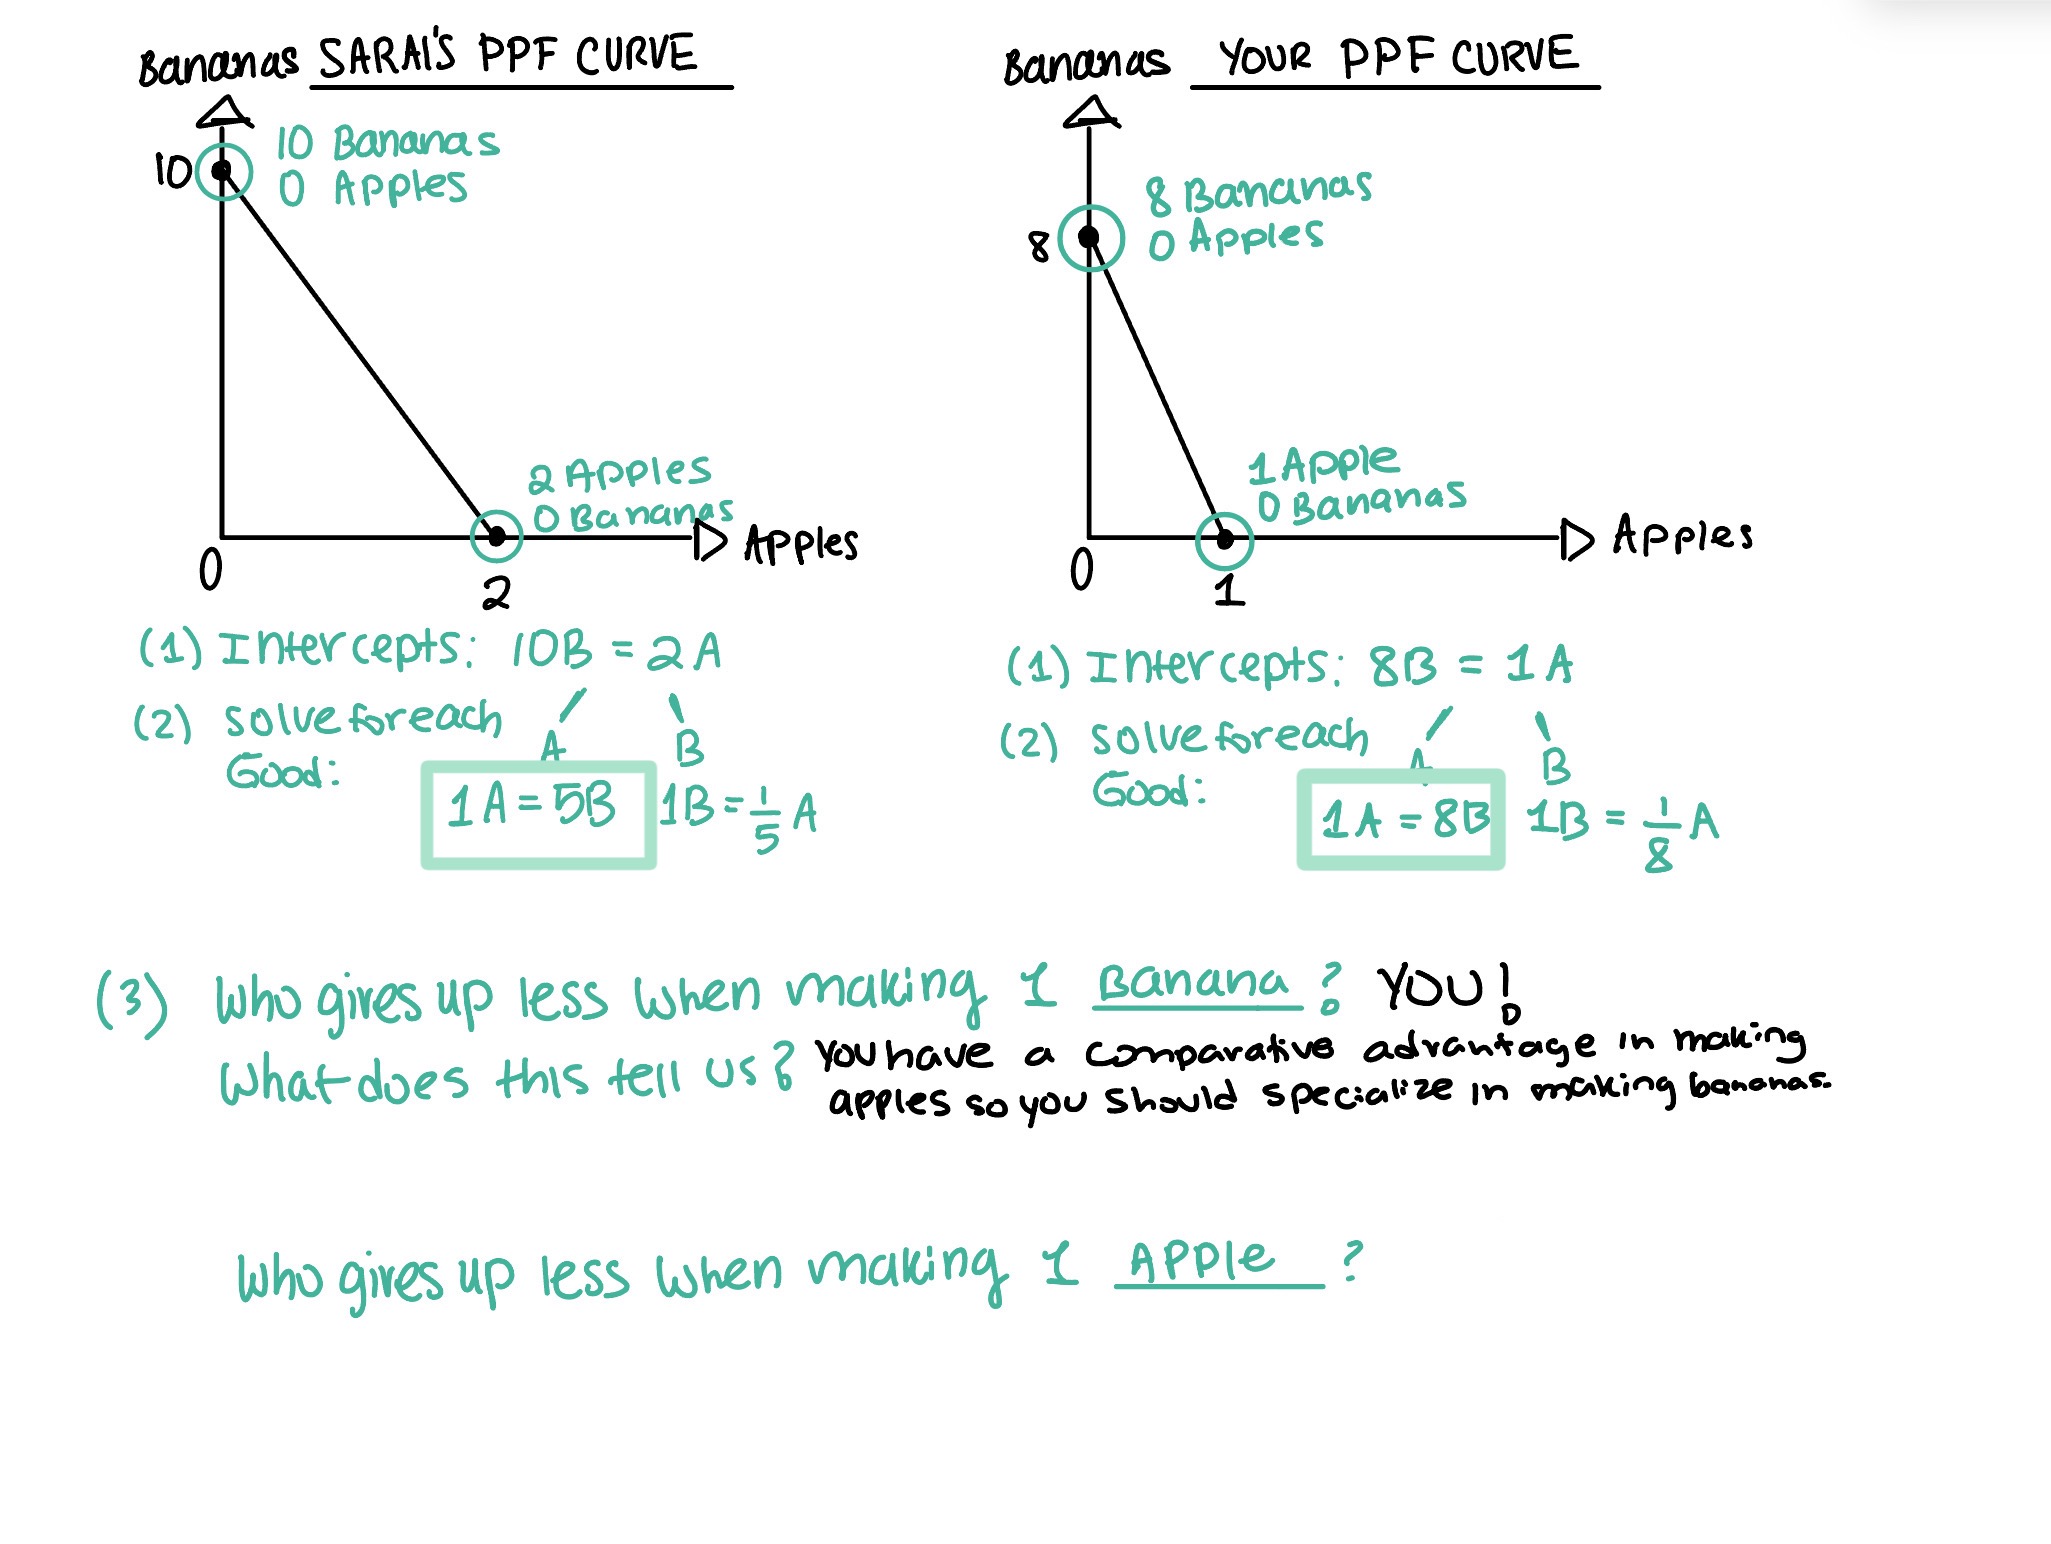 Bananas SARAI'S PPF CURVE
10 Bananas
0 Apples
10
2 Apples
0 Bananas
Apples
0
2
(1) Intercepts: 10B = 2A
(2) solve for each
Good:
A
B
1A = 5B
1B = 1/5 A
Bananas YOUR PPF CURVE
8 Bananas
0 Apples
8
1 Apple
0 Bananas
Apples
0
1
(1) Intercepts: 8B = 1A
(2) solve for each
Good:
A
B
1A = 8B
1B = 1/8 A
(3) Who gives up less when making 1 Banana? YOU!
What does this tell us? You have a comparative advantage in making
apples so you should specialize in making bananas.
Who gives up less when making 1 Apple?